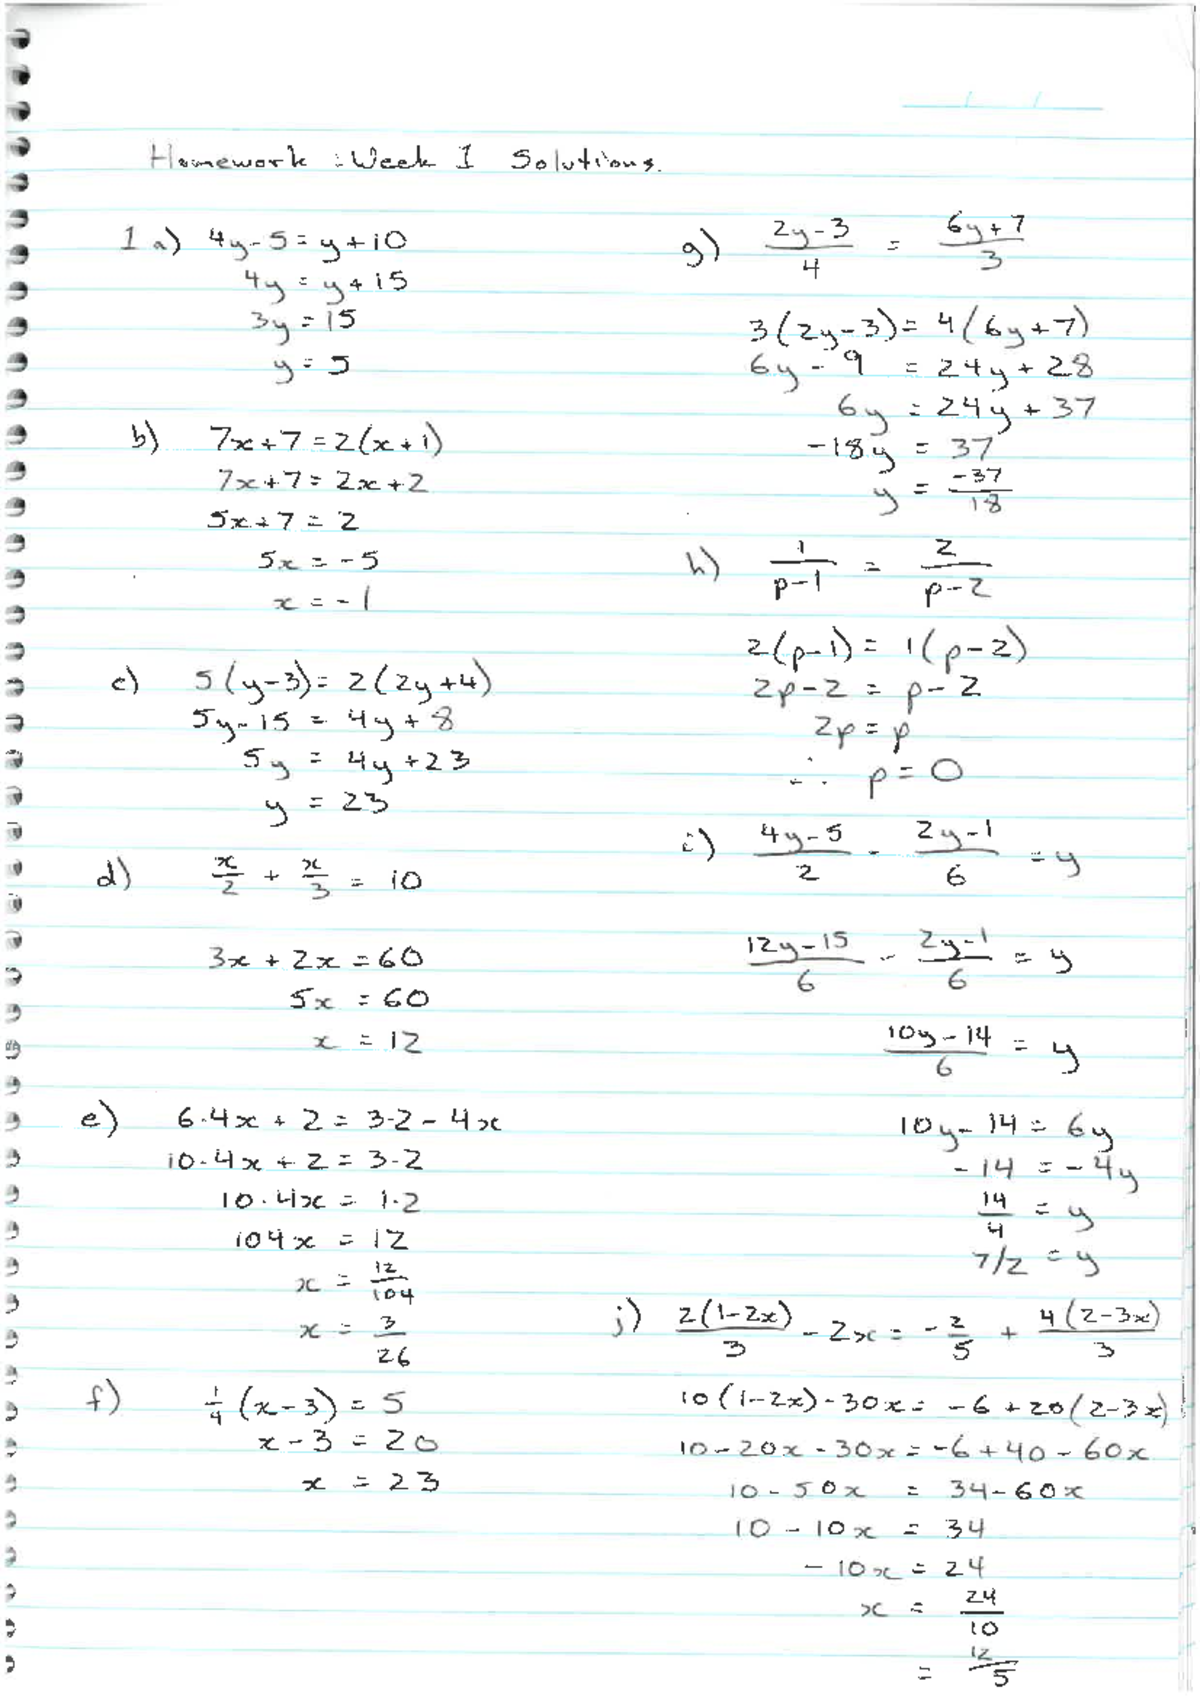 Homework : Week 1 Solutions.
1 a) 4y - 5 = y + 10
4y = y + 15
3y = 15
y = 5
b) 7x + 7 = 2(x + 1)
7x + 7 = 2x + 2
5x + 7 = 2
5x = -5
x = -1
c) 5(y-3) = 2(2y+4)
5y - 15 = 4y + 8
5y = 4y + 23
y = 23
d) x/2 + x/3 = 10
3x + 2x = 60
5x = 60
x = 12
e) 6.4x + 2 = 3.2 - 4x
10.4x + 2 = 3.2
10.4x = 1.2
104x = 12
x = 12/104
x = 3/26
f) 1/4 (x - 3) = 5
x - 3 = 20
x = 23
g) (2y-3)/4 = (6y+7)/3
3(2y-3) = 4(6y+7)
6y - 9 = 24y + 28
6y = 24y + 37
-18y = 37
y = -37/18
h) 1/(p-1) = 2/(p-2)
2(p-1) = 1(p-2)
2p-2 = p-2
2p = p
∴ p = 0
i) (4y-5)/2 - (2y-1)/6 = y
(12y-15)/6 - (2y-1)/6 = y
(10y-14)/6 = y
10y - 14 = 6y
-14 = -4y
14/4 = y
7/2 = y
j) 2(1-2x)/3 - 2x = -2/5 + 4(2-3x)/3
10(1-2x) - 30x = -6 + 20(2-3x)
10 - 20x - 30x = -6 + 40 - 60x
10 - 50x = 34 - 60x
10 - 10x = 34
-10x = 24
x = 24/10
= 12/5